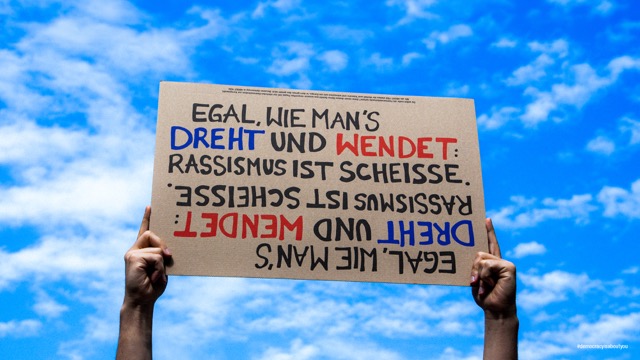 EGAL, WIE MAN'S
DREHT UND WENDET:
RASSISMUS IST SCHEISSE.
RASSISMUS IST SCHEISSE.
DREHT UND WENDET:
EGAL, WIE MAN'S